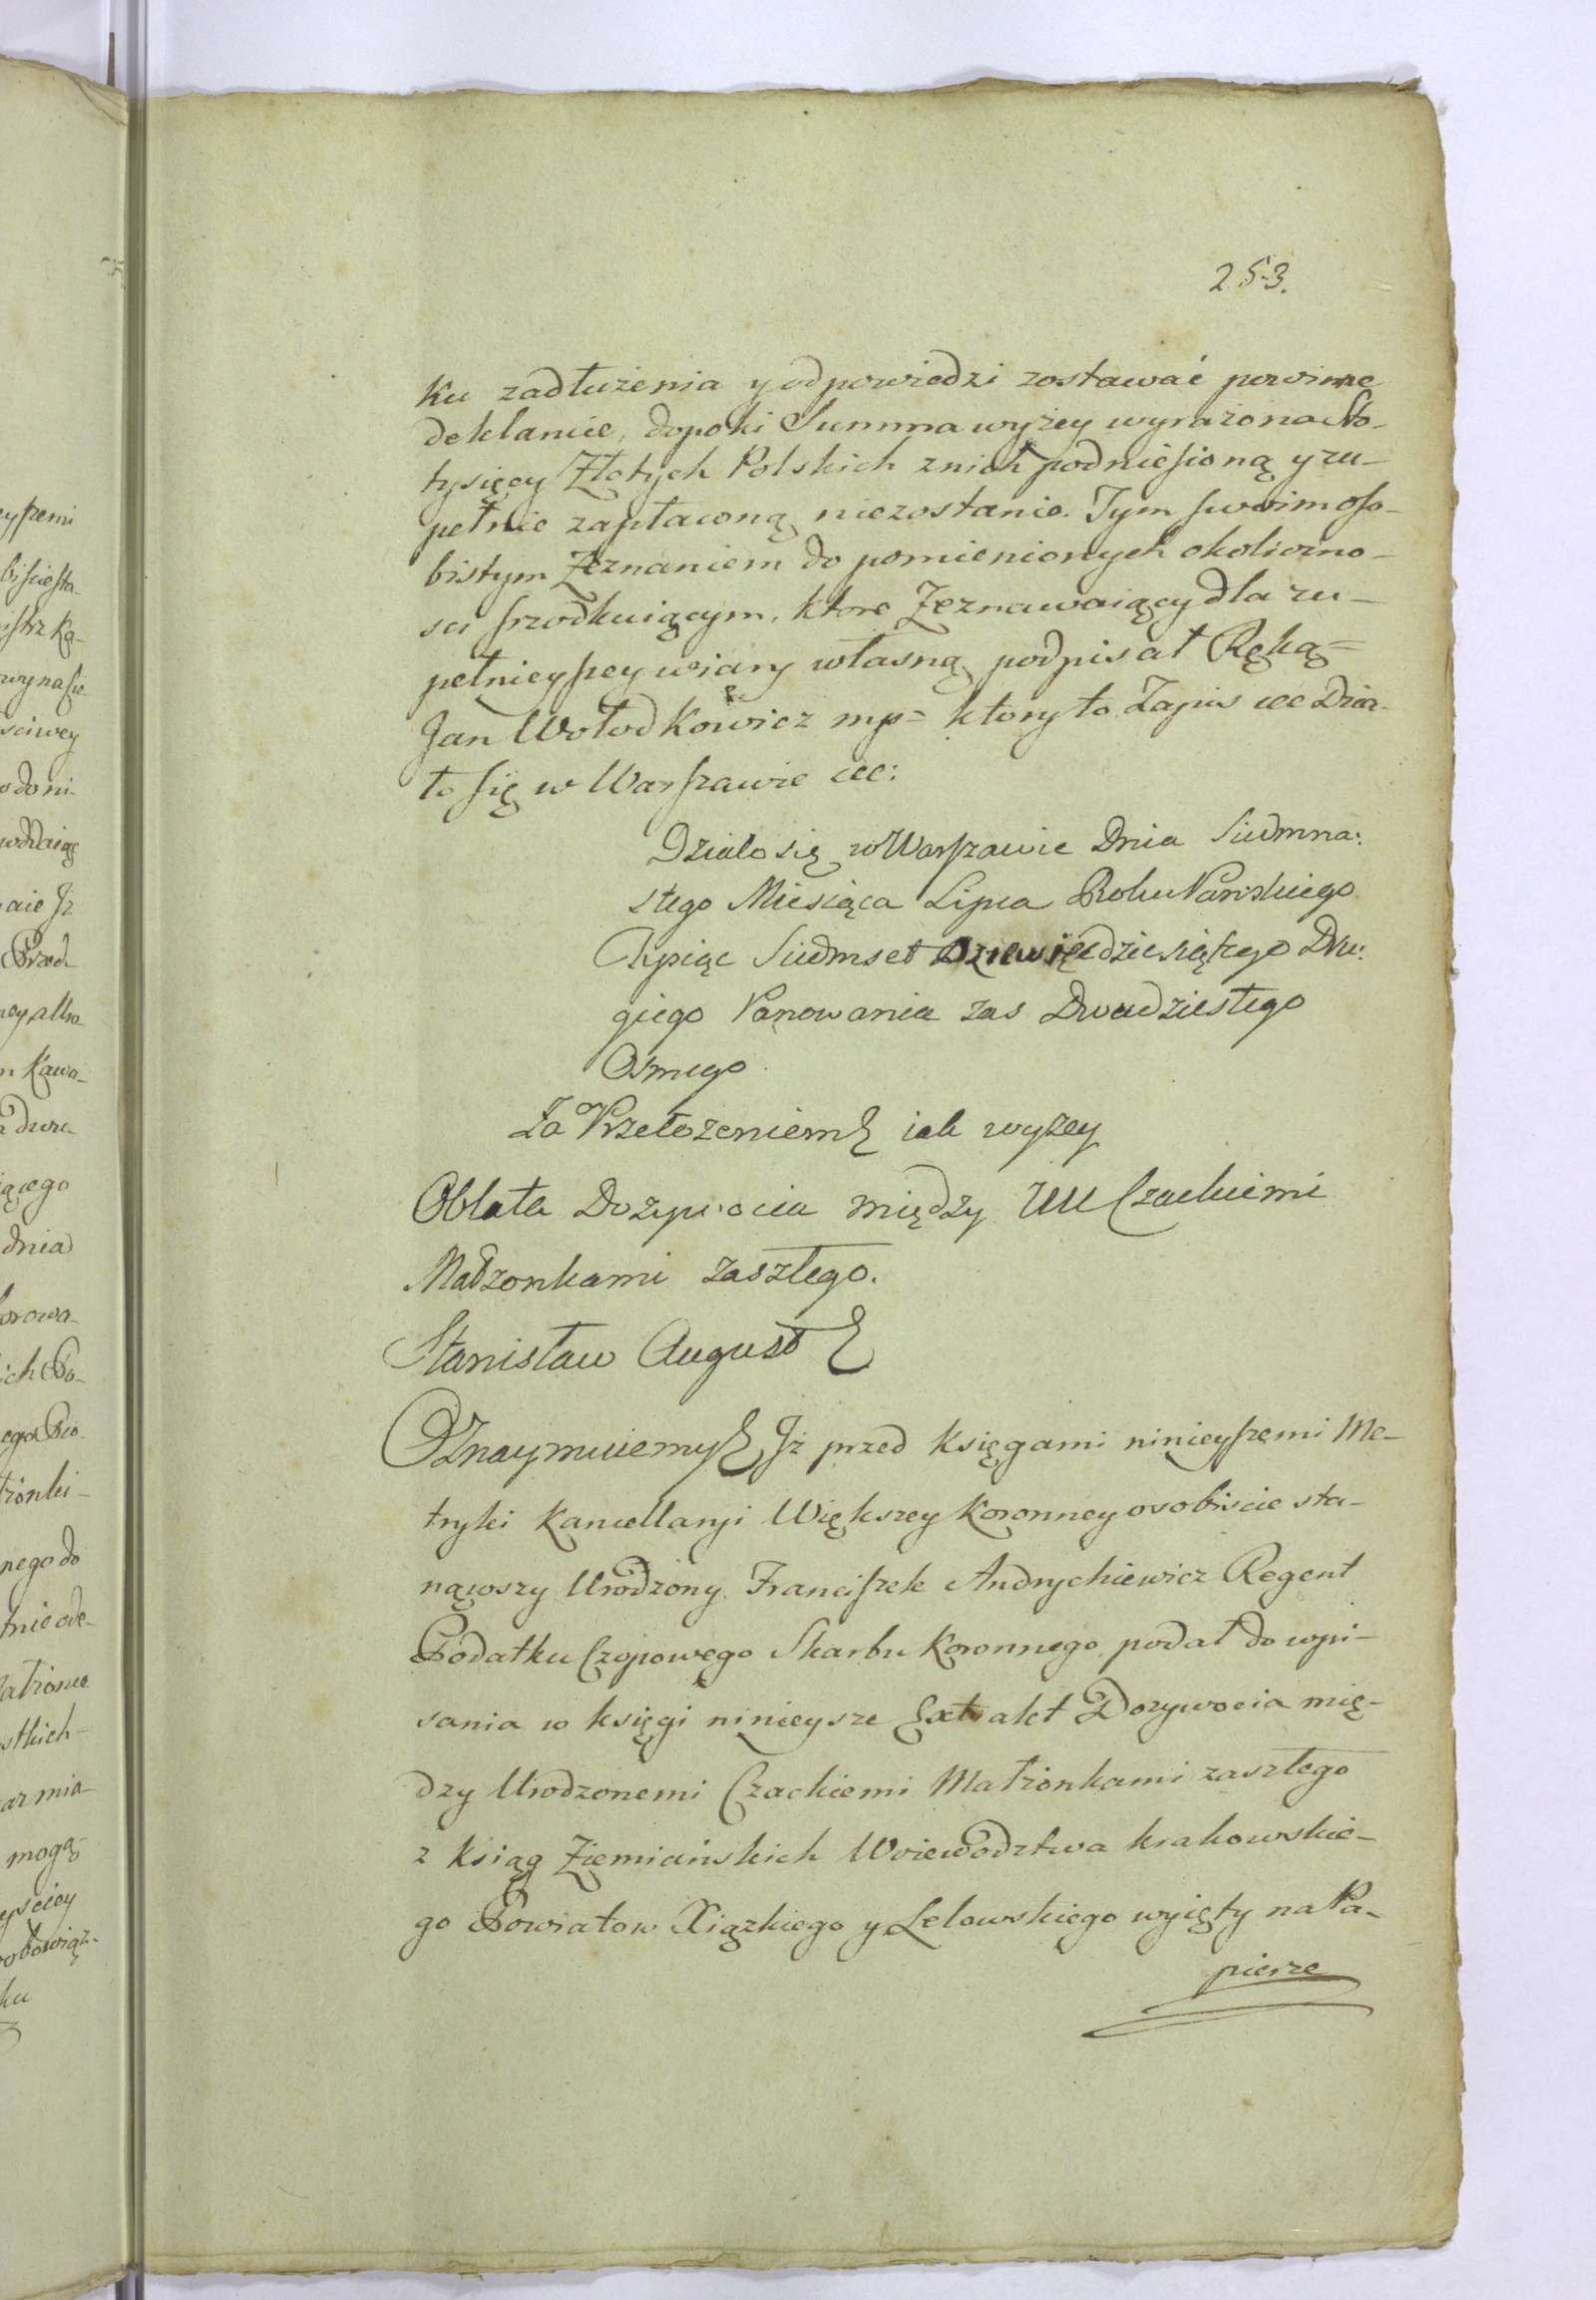 253.
ku zadłużenia y odpowiedzi zostawać powinne
deklanie, dopoki Summa wyżey wyrażona Sto-
tysięcy Złotych Polskich znich podniesioną y zu-
pełnie zapłaconą niezostanie. Tym swoim oso-
bistym Zeznaniem do pomienionych okoliczno-
sci srzodkuiącym, ktore Zeznawaiący dla zu-
pełnieyszey wiary własną podpisał Ręką=
Jan Wołodkowicz mp= ktory to Zapis &c Dzia-
ło się w Warszawie &c:
Działo się w Warszawie Dnia Siedmna:
stego Miesiąca Lipca Roku Pańskiego
Tysiąc Siedmset Dziewiędziesiątego Dru:
giego Panowania zas Dwudziestego
Osmego
Za Przełozeniem iak wyzey
Oblata Dozywocia między UU Czackiemi
Małzonkami zaszłego.
Stanisław August
Oznaymuiemy Jż przed księgami ninieyszemi Me-
tryki Kancellaryi Większey Koronney osobiscie sta-
nąwszy Urodzony Franciszek Andrychiewicz Regent
Podatku Czopowego Skarbu Koronnego podał do wpi-
sania w księgi ninieysze Extrakt Dozywocia mię-
dzy Urodzonemi Czackiemi Małżonkami zaszłego
z ksiąg Ziemiańskich Woiewodztwa krakowskie-
go Powiatow Xiązkiego y Lelowskiego wyięty na Pa-
pierze